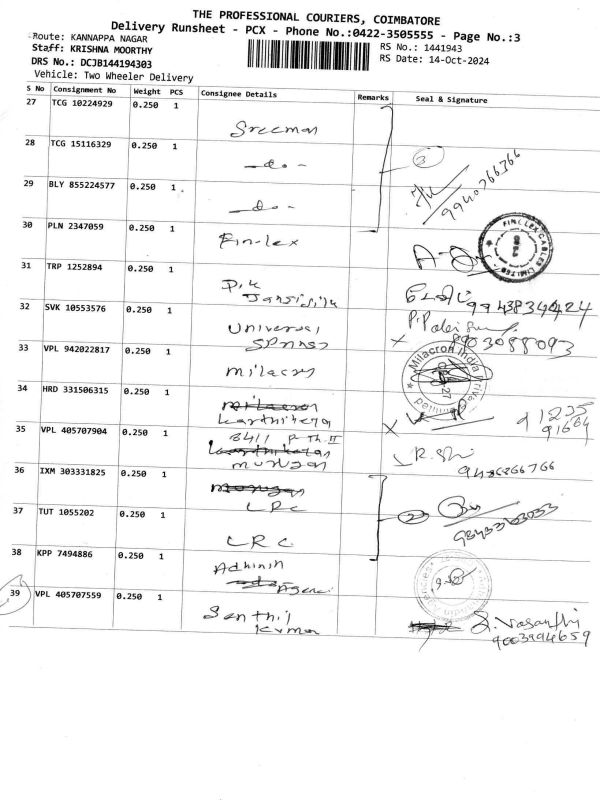 THE PROFESSIONAL COURIERS, COIMBATORE
Delivery Runsheet - PCX - Phone No.:0422-3505555 - Page No.:3
Route: KANNAPPA NAGAR
Staff: KRISHNA MOORTHY
RS No.: 1441943
DRS No.: DCJB144194303
RS Date: 14-Oct-2024
Vehicle: Two Wheeler Delivery
S No Consignment No Weight PCS Consignee Details Remarks Seal & Signature
27 TCG 10224929 0.250 1
Sreeman
28 TCG 15116329 0.250 1
-do-
3
29 BLY 855224577 0.250 1
-do-
9940766366
30 PLN 2347059 0.250 1
Fin-lex
FINOLEX CABLES LIMITED
31 TRP 1252894 0.250 1
P.K
9943834424
32 SVK 10553576 0.250 1
Universal
Springs
9003088093
33 VPL 942022817 0.250 1
Milacron
Milacron India Private Limited
34 HRD 331506315 0.250 1
Karthikeyan
35 VPL 405707904 0.250 1
Murugan
R.
36 IXM 303331825 0.250 1
LRC
2
37 TUT 1055202 0.250 1
LRC
38 KPP 7494886 0.250 1
39 VPL 405707559 0.250 1
Senthil
Kumar
S. Vasanthi
9003994659